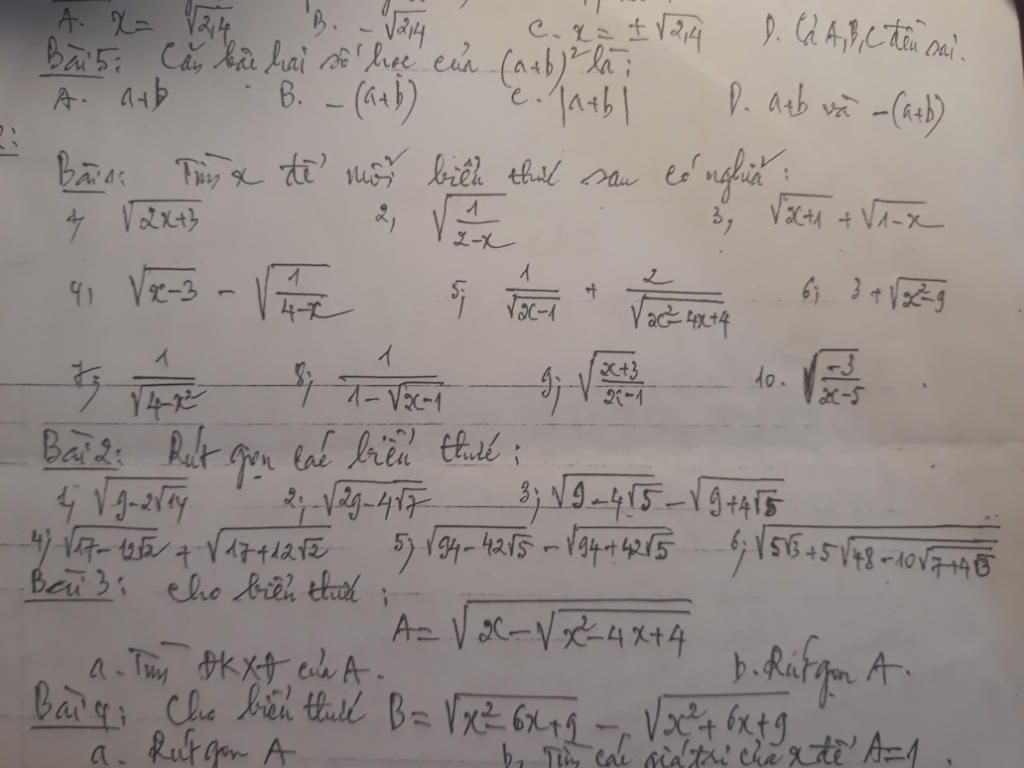 A. x = √2,4 B. -√2,4 C. x = ±√2,4 D. Cả A,B,C đều sai.
Bài 5: Căn bậc hai số học của (a+b)² là:
A. a+b B. -(a+b) C. |a+b| D. a+b và -(a+b)
2:
Bài 1: Tìm x để mỗi biểu thức sau có nghĩa:
1, √(2x+3) 2, √(1/(2-x)) 3, √(x+1) + √(1-x)
4, √(x-3) - √(1/(4-x)) 5, 1/√(x-1) + 2/√(x²-4x+4) 6, 3 + √(x²-9)
7, 1/√(4-x²) 8, 1/(1-√(x-1)) 9, √((x+3)/(x-1)) 10. √(-3/(x-5))
Bài 2: Rút gọn các biểu thức:
1, √(9-2√14) 2, √(29-4√7) 3, √(9-4√5) - √(9+4√5)
4, √(17-12√2) + √(17+12√2) 5, √(94-42√5) - √(94+42√5) 6, √(5√3+5√(48-10√(7+4√3)))
Bài 3: Cho biểu thức:
A = √(x-√(x²-4x+4))
a. Tìm ĐKXĐ của A. b. Rút gọn A.
Bài 4: Cho biểu thức B = √(x²-6x+9) - √(x²+6x+9)
a. Rút gọn A b, Tìm các giá trị của x để A=1.